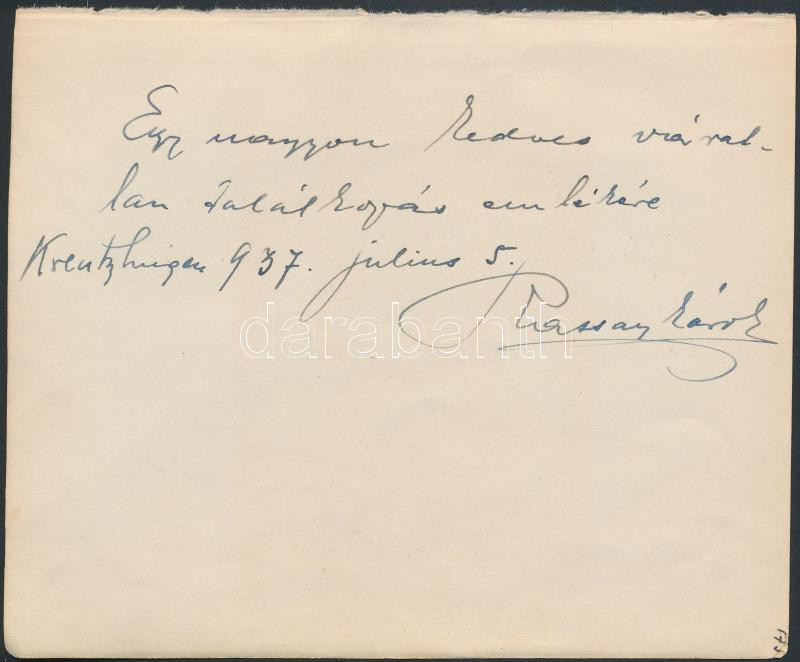 Egy nagyon kedves várat-
lan találkozás emlékére
Kreutzlingen 937. július 5.
Rassay Károly
darabanth